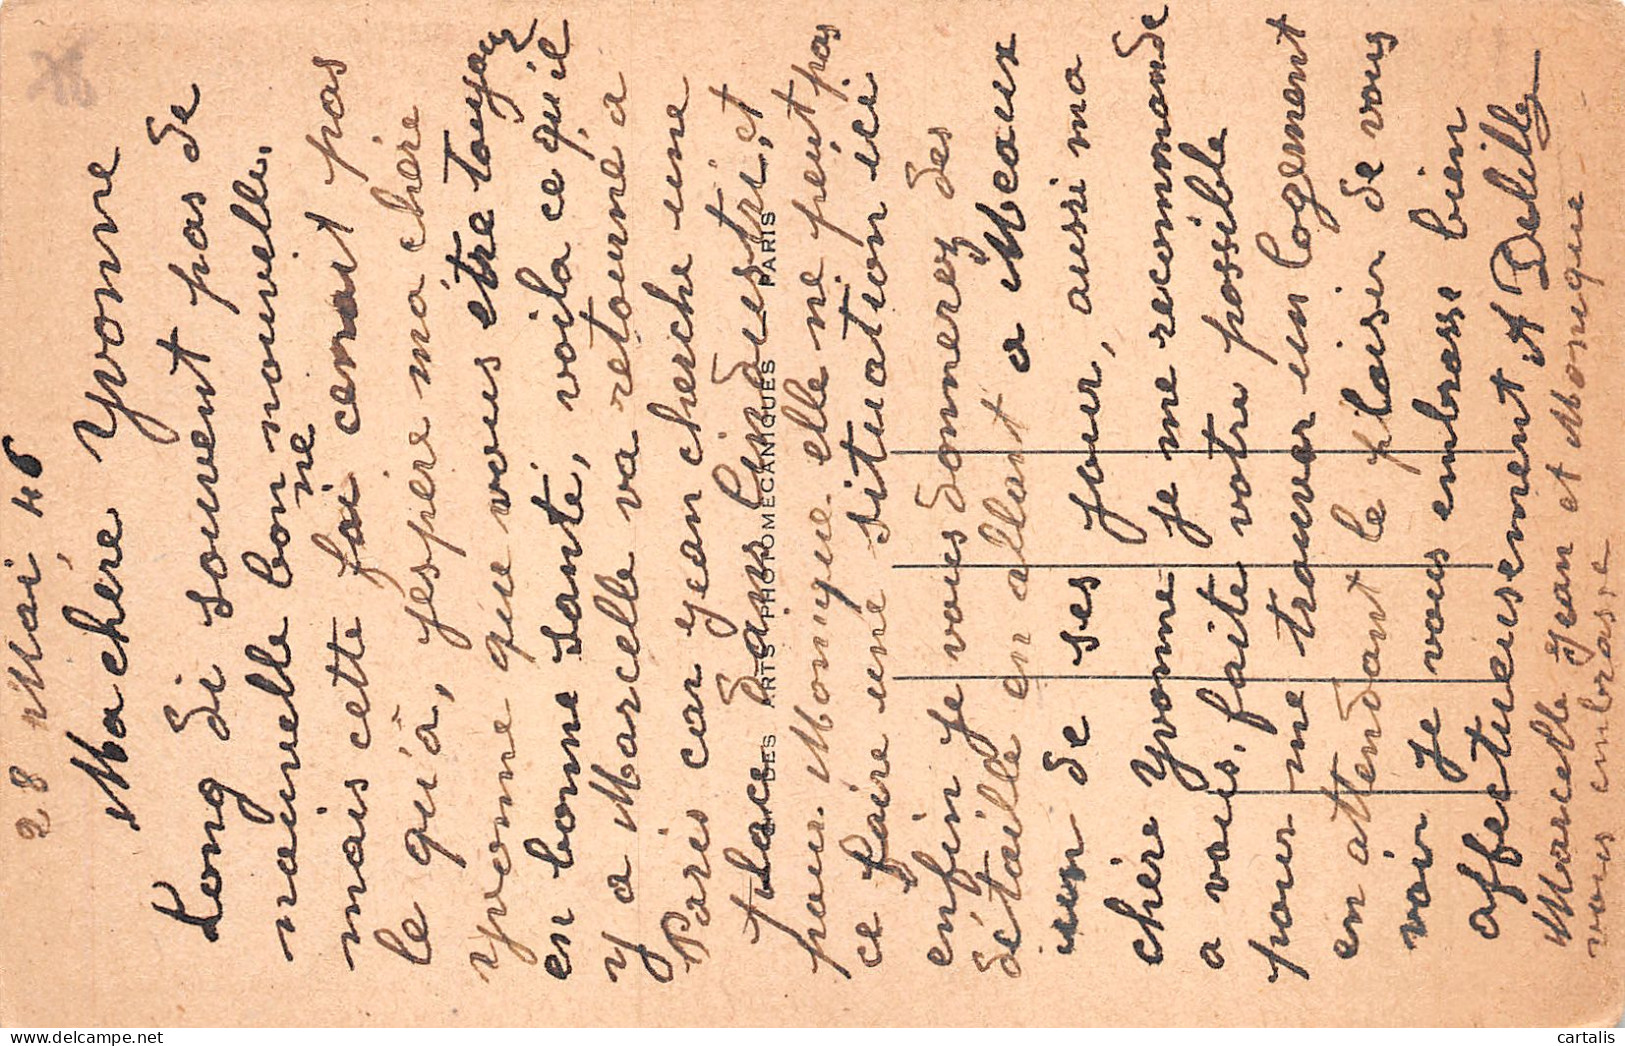 28 Mai, 46
Ma chéré Yvonne
Long di souvent pas de
nouvelle bonne nouvelle.
mais cette foi cerait pas
le qu'a, j'espère ma chère
Yvonne que vous être toujour
en bonne santé, voila ce qu'il
y a Marcelle va retourné a
Paris car yean cherche une
place dans lindustri, et
pour Monique elle ne peut pas
ce faire une situation ici
enfin je vous donnerez des
détaille en allant a Meaux
un de ses jour, aussi ma
chère Yvonne je me recommande
a vous, faite votre possible
pour me trouver un logement
en attendant le plaisir de vous
voir je vous embrasse bien
affectueusement A Delille
Marcelle Jean et Monique
vous embrasse
DES ARTS PHOTOMÉCANIQUES PARIS
cartalis